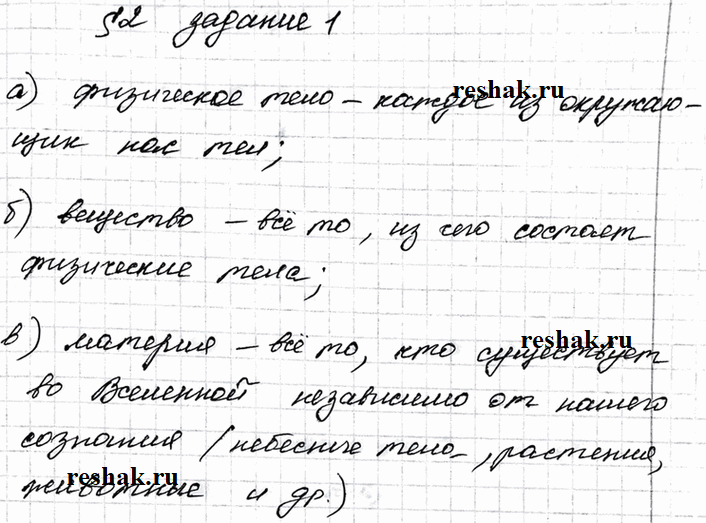 §2 задание 1
а) физическое тело – каждое из окружаю-
щих нас тел;
б) вещество – всё то, из чего состоят
физические тела;
в) материя – всё то, что существует
во Вселенной независимо от нашего
сознания (небесные тела, растения,
животные и др.)
reshak.ru
reshak.ru
reshak.ru